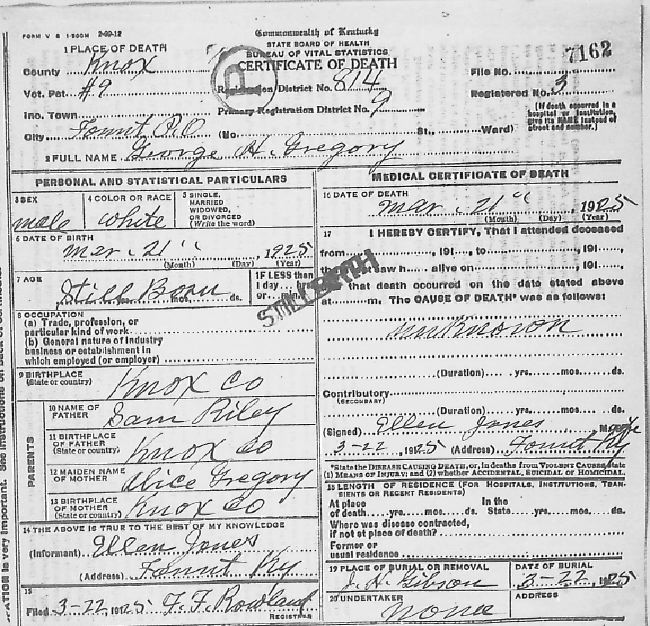 FORM V S 1-500M 2-20-12
Commonwealth of Kentucky
STATE BOARD OF HEALTH
BUREAU OF VITAL STATISTICS
CERTIFICATE OF DEATH
7162
1 PLACE OF DEATH
County Knox
Vot. Pct #9
Inc. Town
City Fount P.O. (No St., Ward)
Registration District No. 814
Primary Registration District No. 9
File No.
Registered No. 3
(If death occurred in a hospital or institution, give its NAME instead of street and number.)
2 FULL NAME George H. Gregory
PERSONAL AND STATISTICAL PARTICULARS
3 SEX
male
4 COLOR OR RACE
white
5 SINGLE, MARRIED WIDOWED, OR DIVORCED (Write the word)
6 DATE OF BIRTH
Mar. 21", 1925
(Month) (Day) (Year)
7 AGE
Still Born
yrs. mos. ds.
If LESS than 1 day hrs. or min.
STILLBIRTH
8 OCCUPATION
(a) Trade, profession, or particular kind of work
(b) General nature of industry business or establishment in which employed (or employer)
9 BIRTHPLACE
(State or country) Knox Co
PARENTS
10 NAME OF FATHER Sam Riley
11 BIRTHPLACE OF FATHER
(State or country) Knox Co
12 MAIDEN NAME OF MOTHER Alice Gregory
13 BIRTHPLACE OF MOTHER
(State or country) Knox Co
14 THE ABOVE IS TRUE TO THE BEST OF MY KNOWLEDGE
(Informant) Ellen Jones
(Address) Fount Ky
15
Filed 3-22, 1925 F. F. Rowland
REGISTRAR
MEDICAL CERTIFICATE OF DEATH
16 DATE OF DEATH
Mar. 21", 1925
(Month) (Day) (Year)
17 I HEREBY CERTIFY, That I attended deceased
from , 191 , to , 191 ,
that I last saw h alive on , 191 ,
that death occurred on the date stated above
at m. The CAUSE OF DEATH* was as follows:
unknown
(Duration) yrs. mos. ds.
Contributory
(SECONDARY)
(Duration) yrs. mos. ds.
(Signed) Ellen Jones
3-22, 1925 (Address) Fount Ky
*State the DISEASE CAUSING DEATH, or, in deaths from VIOLENT CAUSES, state (1) MEANS OF INJURY; and (2) whether ACCIDENTAL, SUICIDAL or HOMICIDAL.
18 LENGTH OF RESIDENCE (FOR HOSPITALS, INSTITUTIONS, TRANSIENTS OR RECENT RESIDENTS)
At place of death yrs. mos. ds. In the State yrs. mos. ds.
Where was disease contracted, if not at place of death?
Former or usual residence
19 PLACE OF BURIAL OR REMOVAL
J. H. Gibson
DATE OF BURIAL
3-22, 1925
20 UNDERTAKER
none
ADDRESS